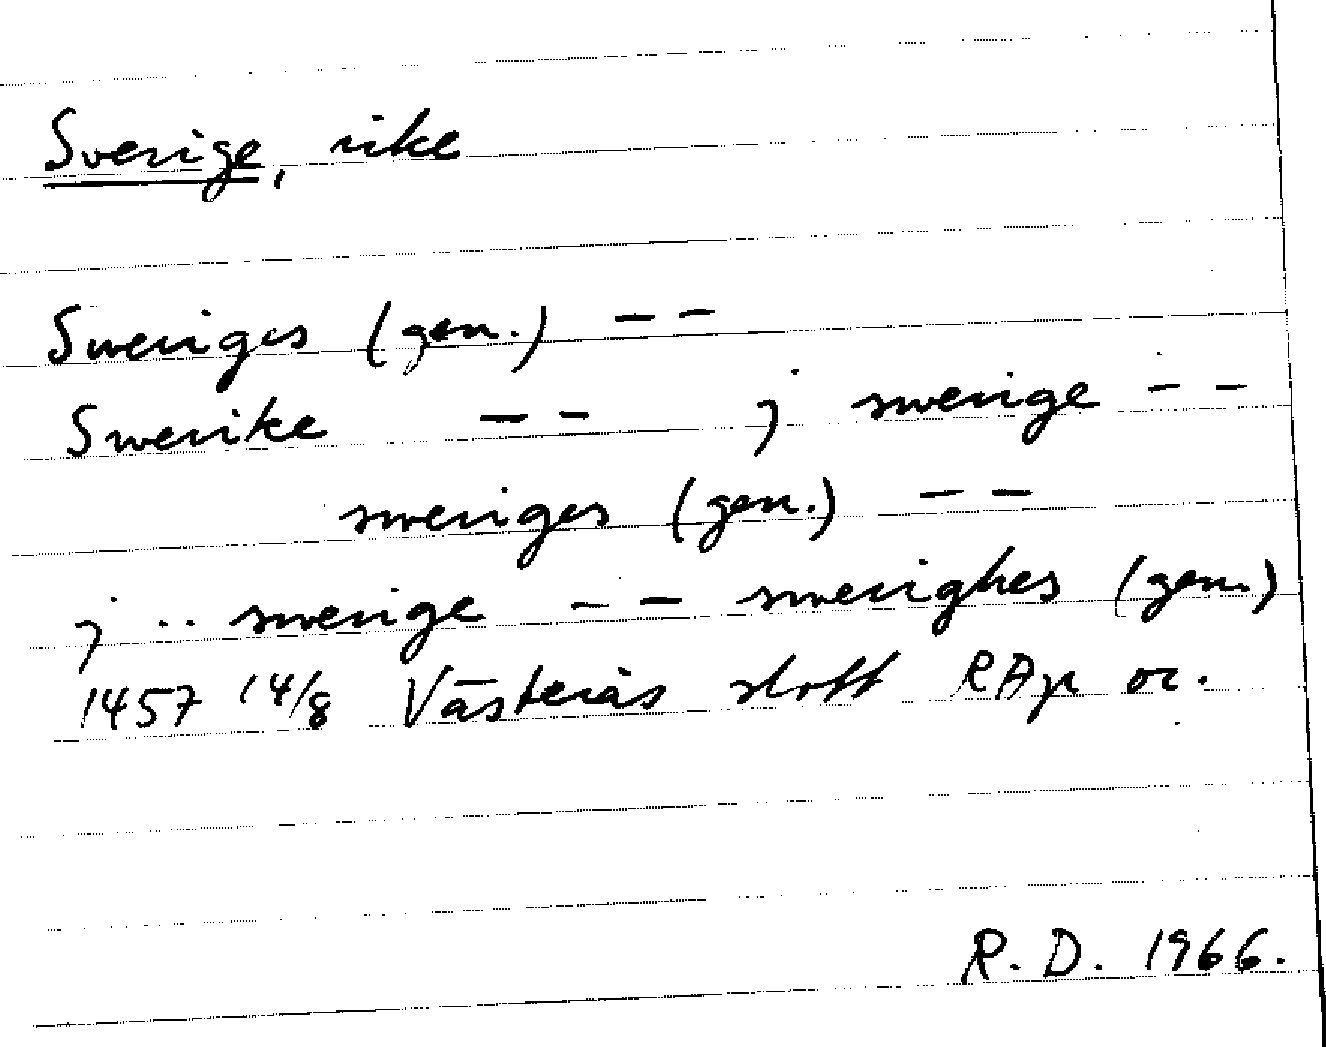 Sverige, rike
Sweriges (gen.) – –
Swerike – – j swerige – –
sweriges (gen.) – –
j .. swerige – – swerighes (gen.)
1457 14/8 Västerås slott RAp or.
R. D. 1966.